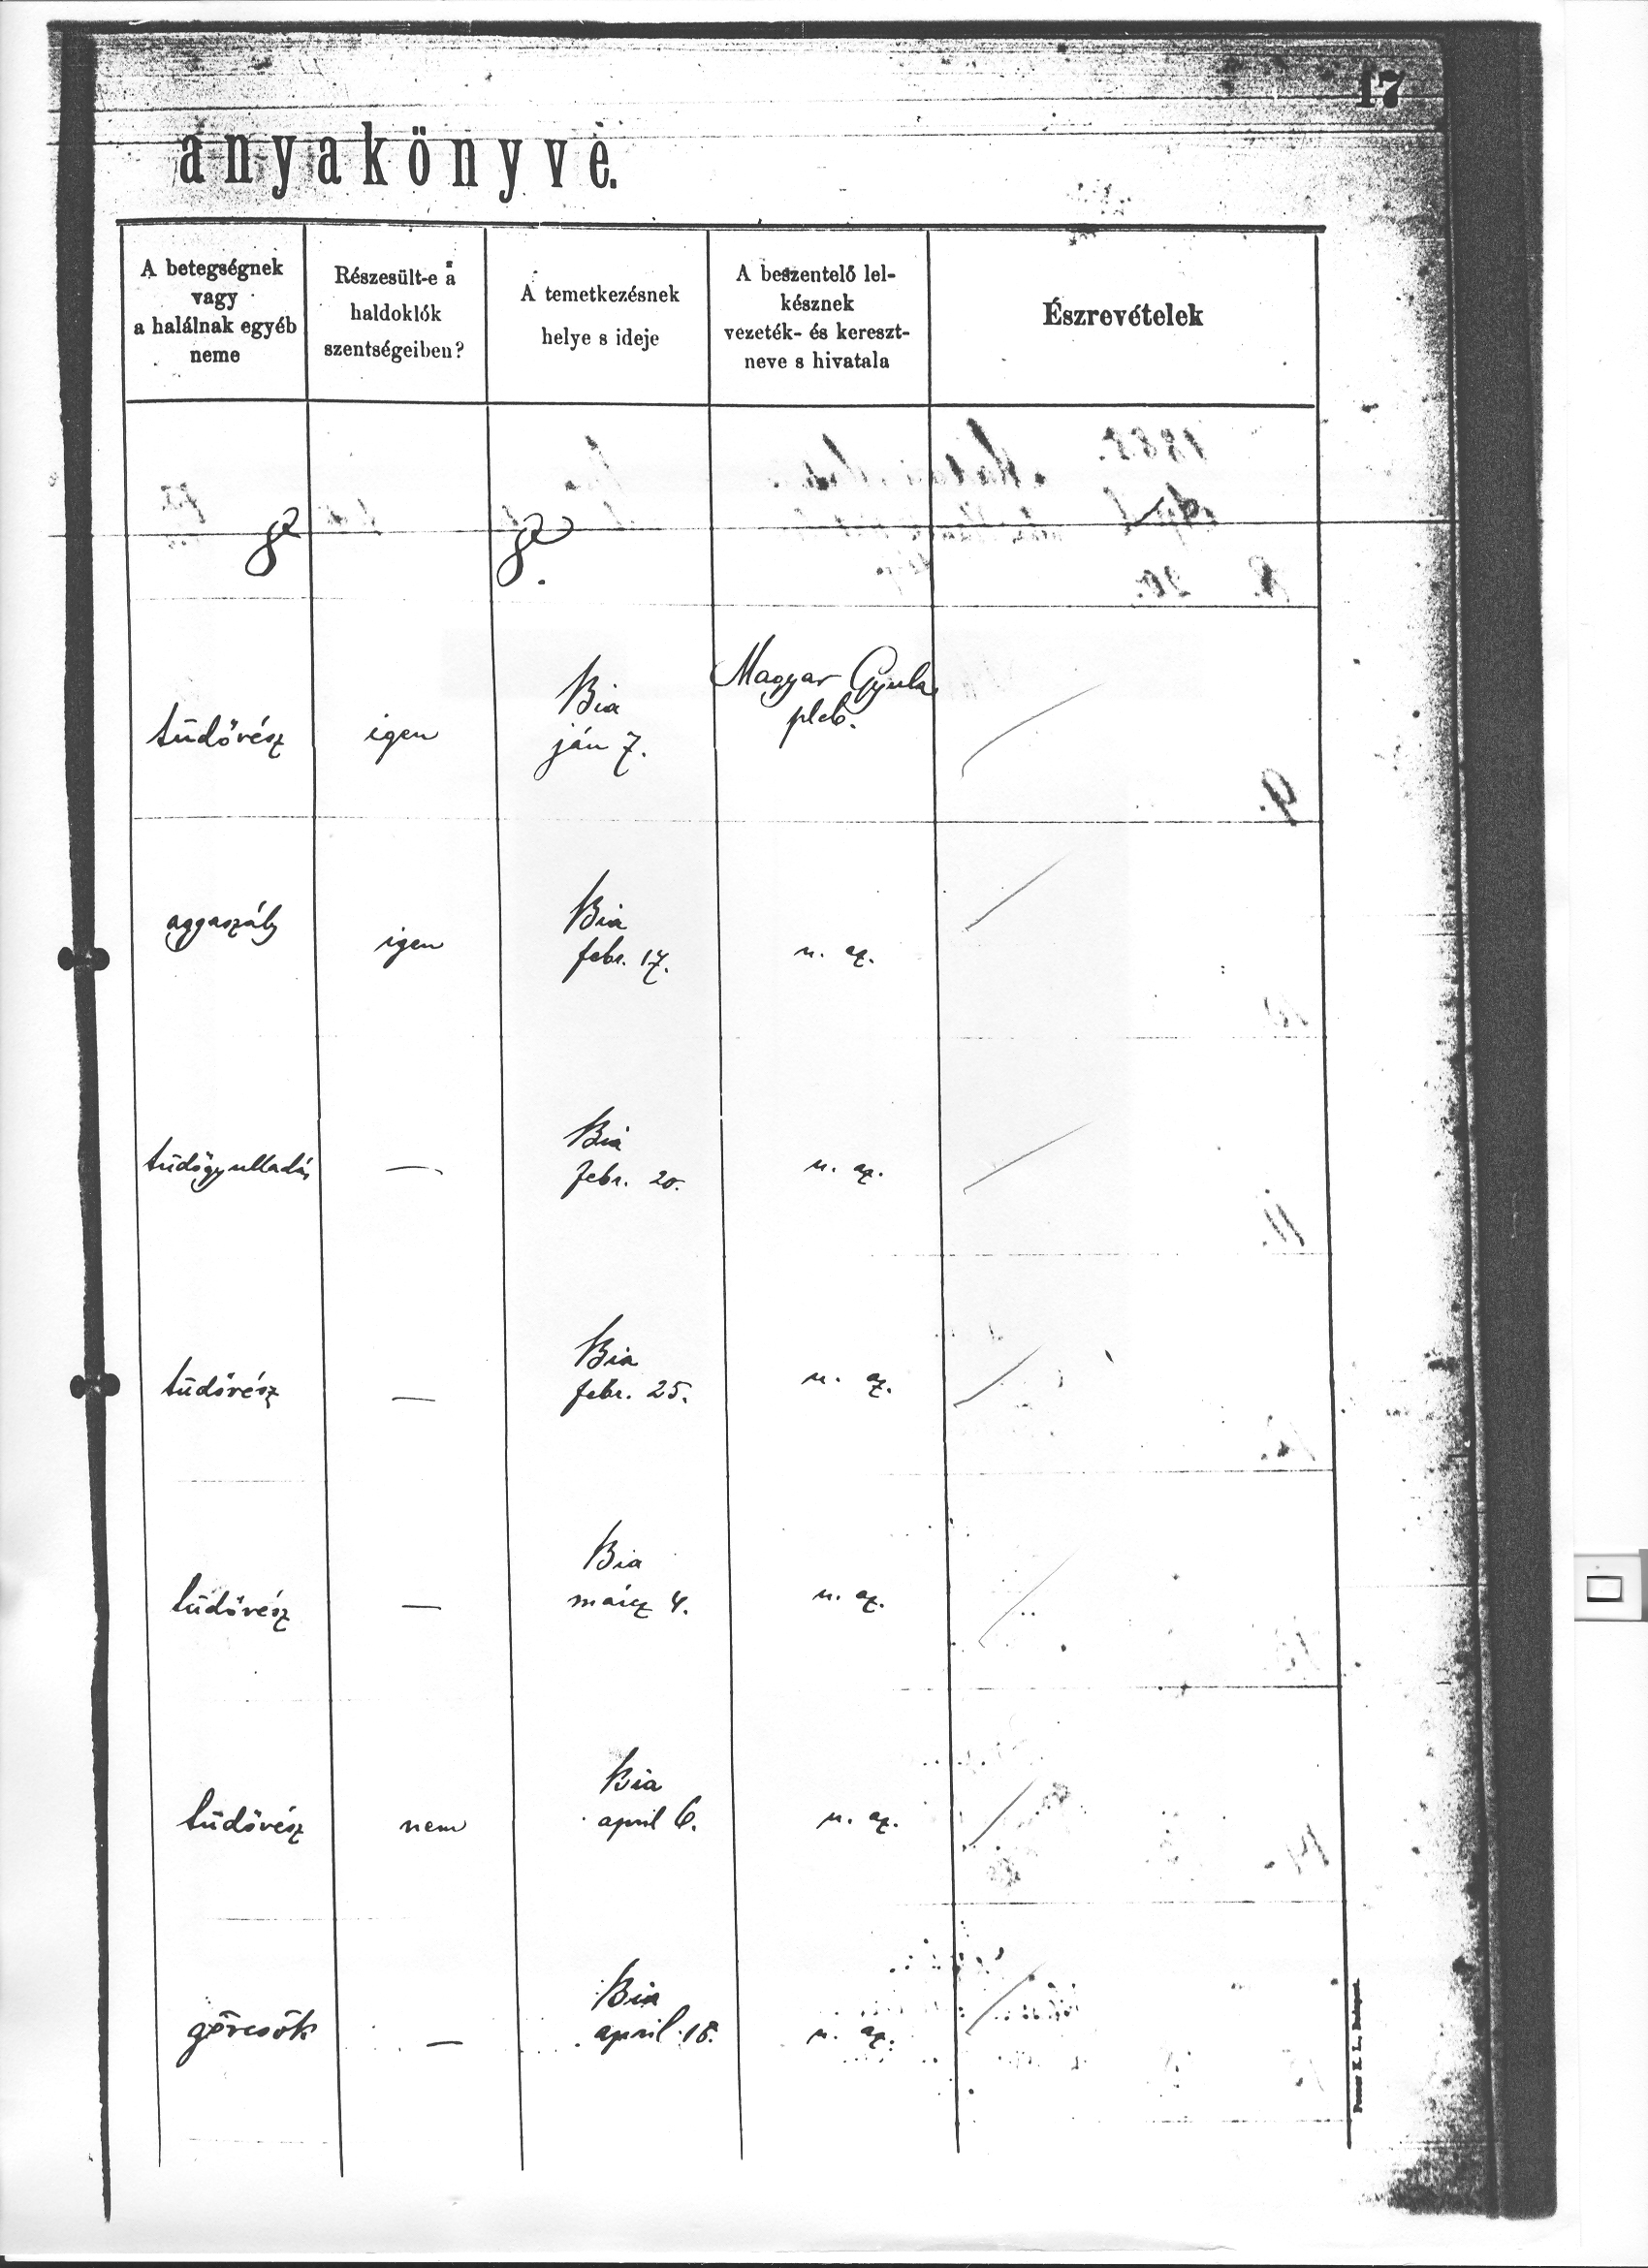 17
anyakönyve.
A betegségnek
vagy
a halálnak egyéb
neme
Részesült-e a
haldoklók
szentségeiben?
A temetkezésnek
helye s ideje
A beszentelő lel-
késznek
vezeték- és kereszt-
neve s hivatala
Észrevételek
tüdővész
igen
Bia
ján 7.
Magyar Gyula
pleb.
aggaszály
igen
Bia
febr. 17.
u. az.
tüdőgyulladás
—
Bia
febr. 20.
u. az.
tüdővész
—
Bia
febr. 25.
u. az.
tüdővész
—
Bia
márcz 4.
u. az.
tüdővész
nem
Bia
april 6.
u. az.
görcsök
—
Bia
april 18.
u. az.